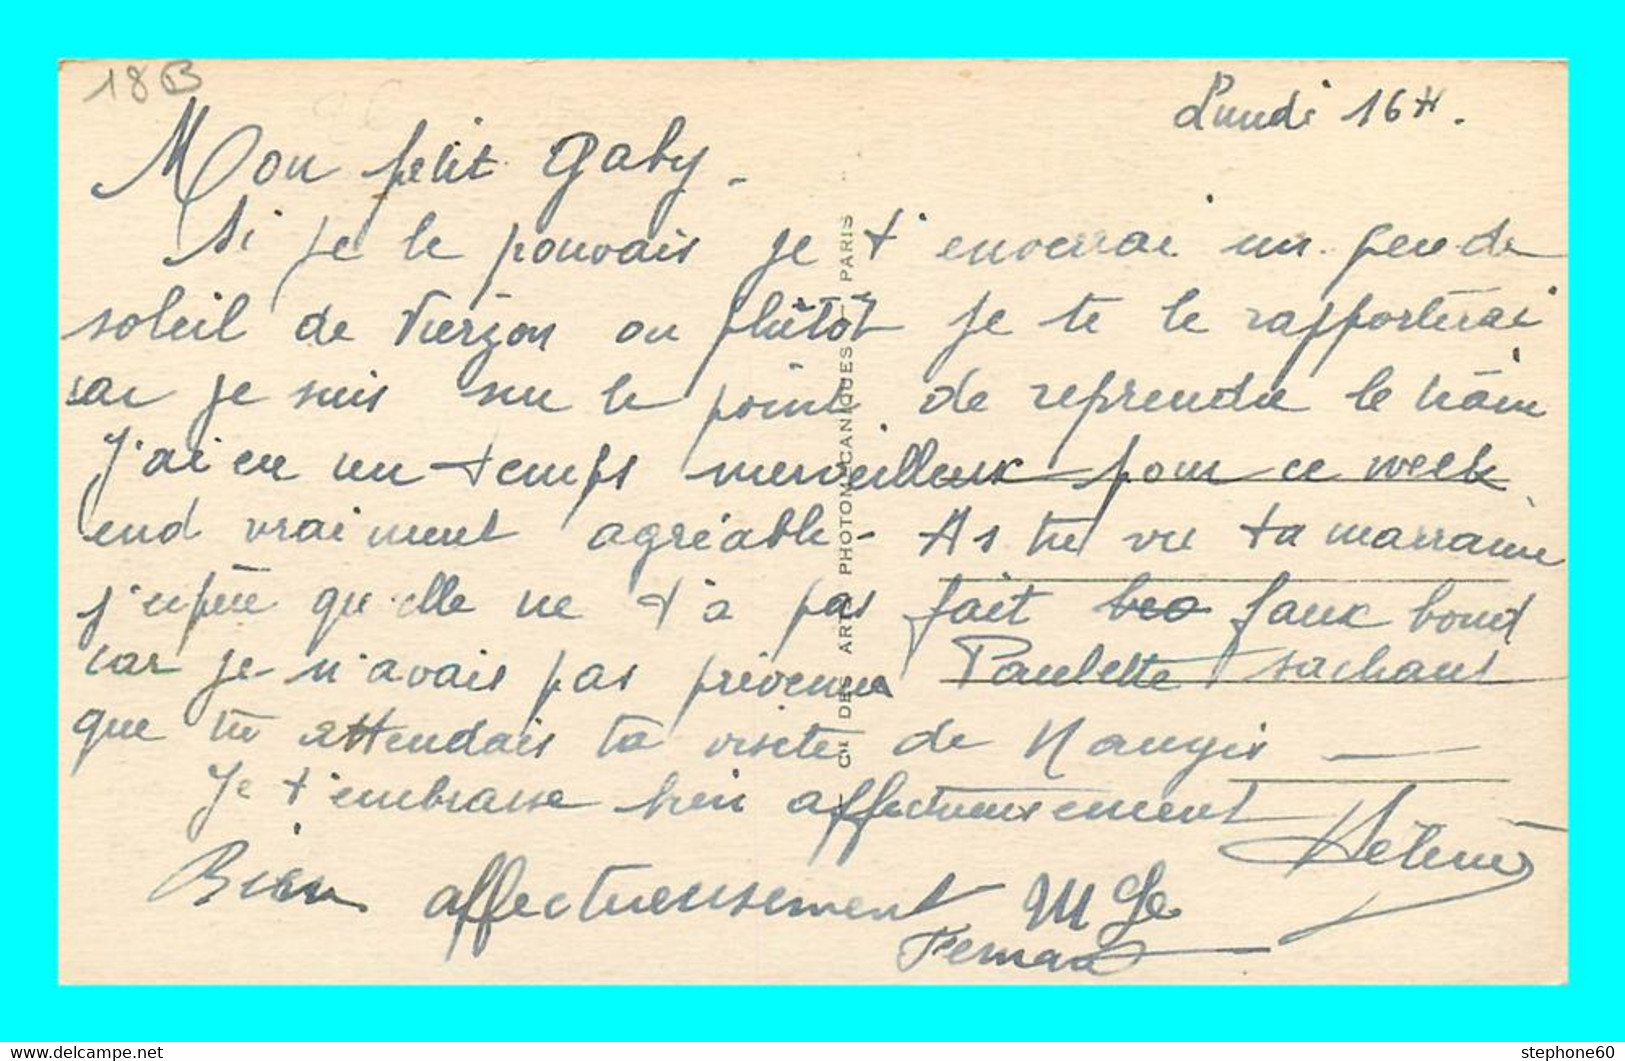 18B
Lundi 16H.
Mon petit Gaby -
Si je le pouvais je t'enverrai un peu de
soleil de Vierzon ou plutôt je te le rapporterai
car je suis sur le point de reprendre le train
J'ai eu un temps merveilleux pour ce week
end vraiment agréable - As tu vu ta marraine
j'espère qu'elle ne t'a pas fait faux bond
car je n'avais pas prévenu Paulette sachant
que tu attendais ta visite de Nangis —
Je t'embrasse bien affectueusement
Hélène
Bien affectueusement
Fernand
CIE DES ARTS PHOTOMÉCANIQUES — PARIS
stephone60